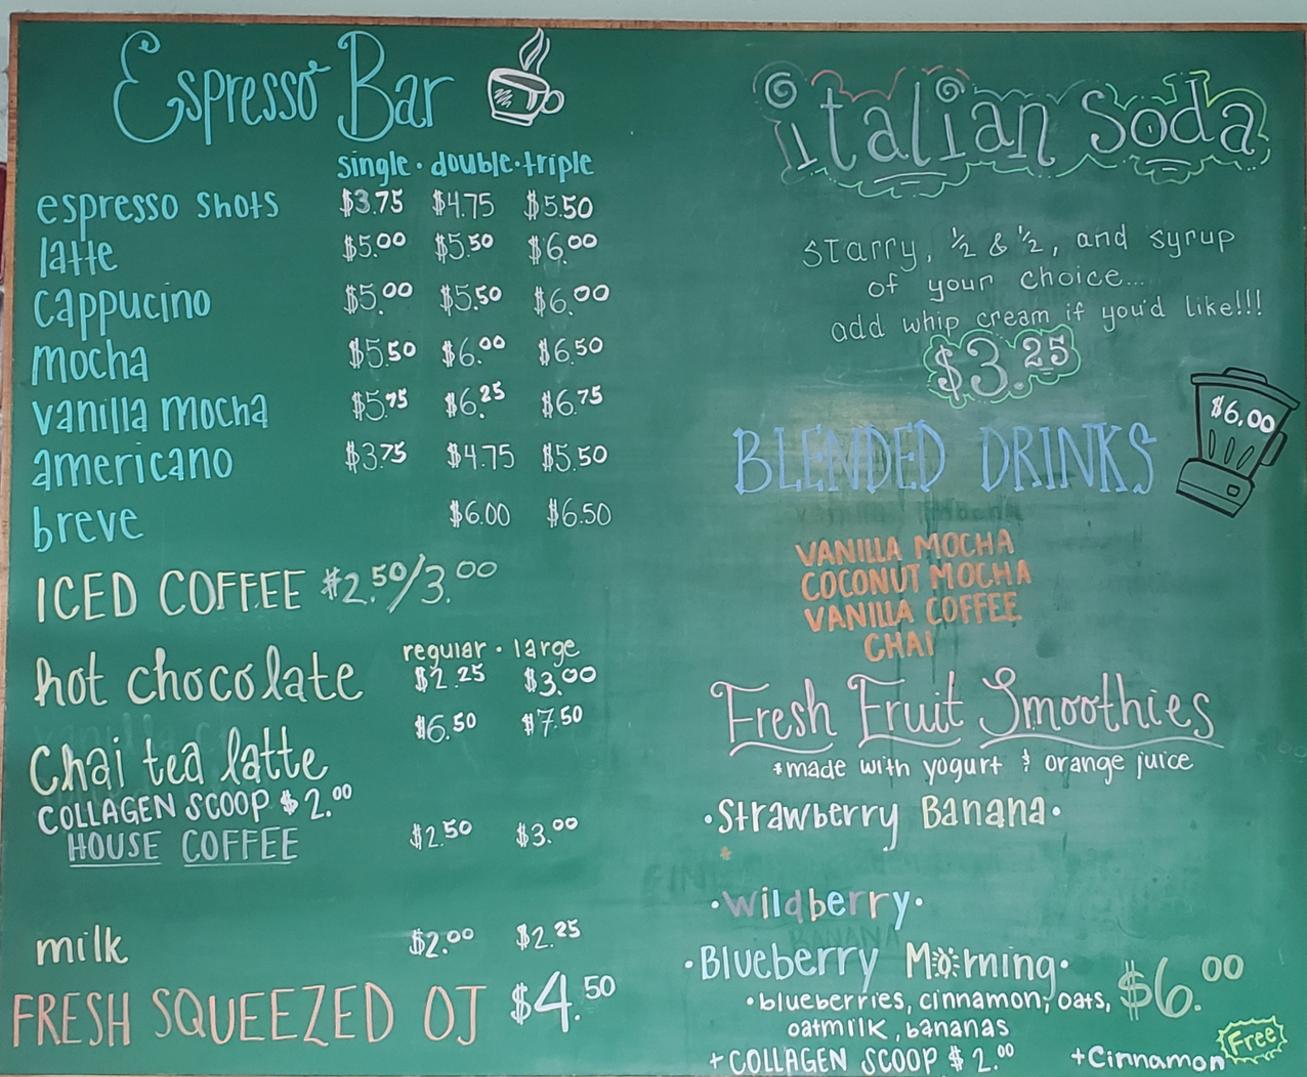 Espresso Bar
single · double · triple
espresso shots $3.75 $4.75 $5.50
latte $5.00 $5.50 $6.00
cappucino $5.00 $5.50 $6.00
mocha $5.50 $6.00 $6.50
vanilla mocha $5.75 $6.25 $6.75
americano $3.75 $4.75 $5.50
breve $6.00 $6.50
ICED COFFEE $2.50/3.00
regular · large
hot chocolate $2.25 $3.00
Chai tea latte $6.50 $7.50
COLLAGEN SCOOP $2.00
HOUSE COFFEE $2.50 $3.00
milk $2.00 $2.25
FRESH SQUEEZED OJ $4.50
italian Soda
starry, ½ & ½, and syrup
of your choice...
add whip cream if you'd like!!!
$3.25
BLENDED DRINKS $6.00
VANILLA MOCHA
COCONUT MOCHA
VANILLA COFFEE
CHAI
Fresh Fruit Smoothies
*made with yogurt & orange juice
·Strawberry Banana·
·wildberry·
·Blueberry Morning· $6.00
·blueberries, cinnamon, oats,
oatmilk, bananas
+COLLAGEN SCOOP $2.00 +Cinnamon Free